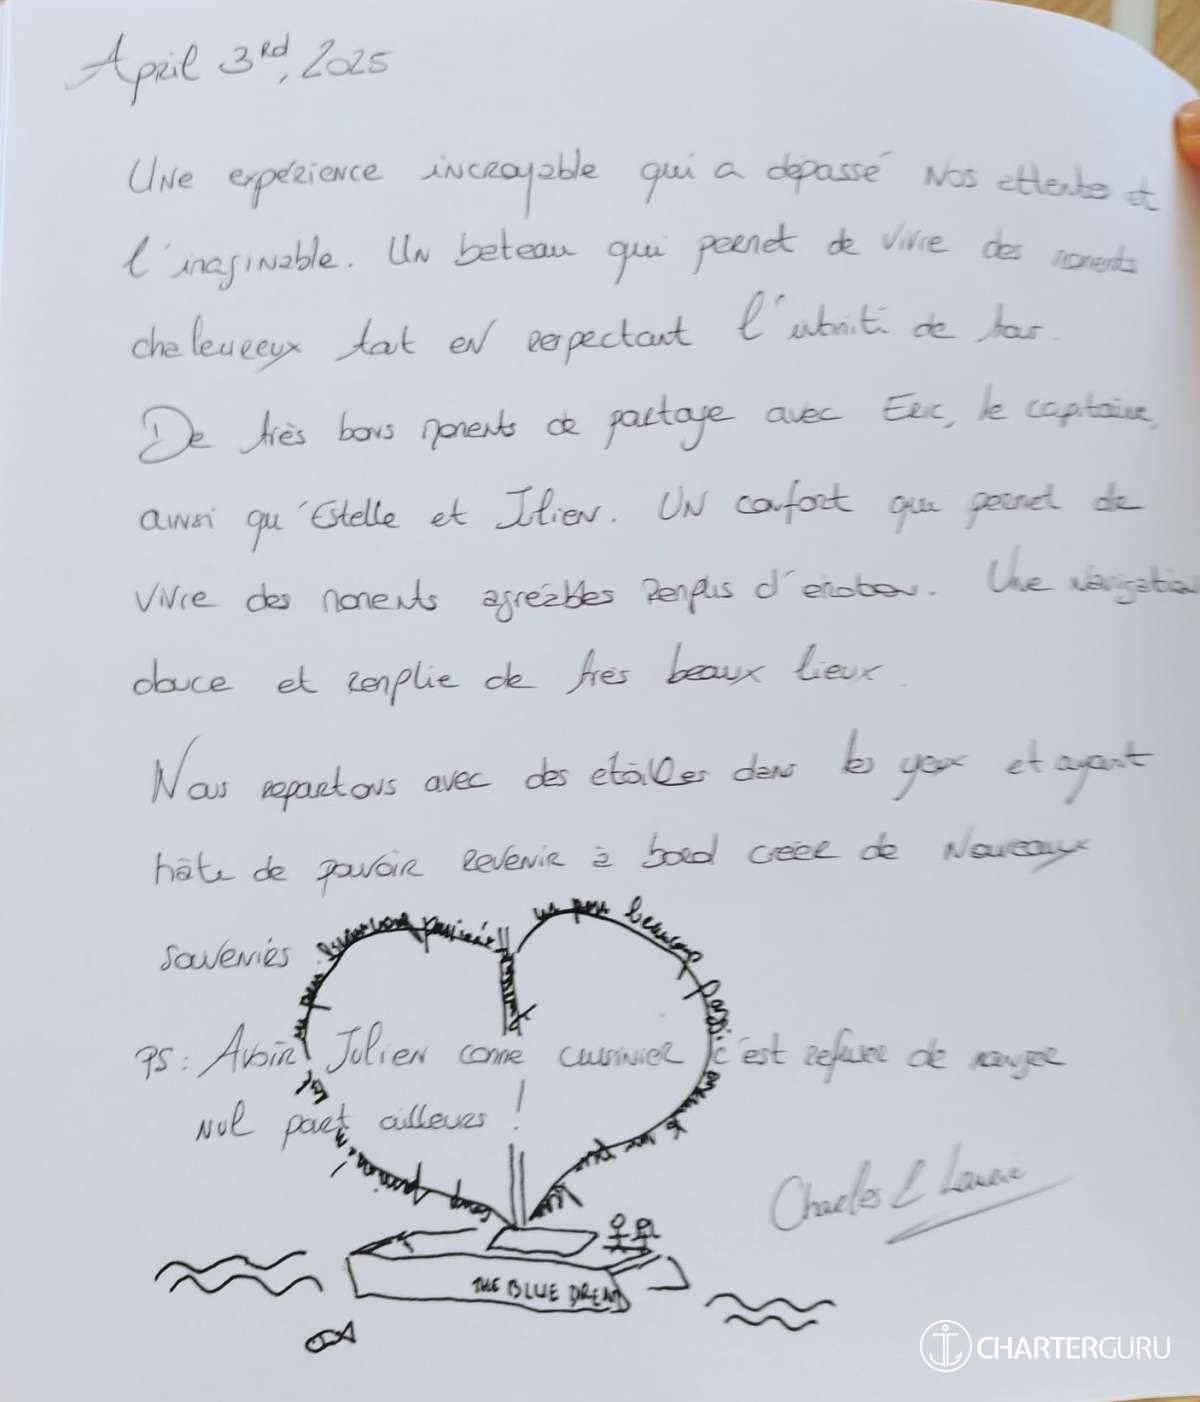 April 3rd, 2025
Une expérience incroyable qui a dépassé nos attente et
l'imaginable. Un bateau qui permet de vivre des moments
chaleureux tout en respectant l'intimité de tous.
De très bons moments de partage avec Eric, le capitaine,
ainsi qu'Estelle et Julien. Un confort qui permet de
vivre des moments agréables remplis d'émotion. Une navigation
douce et remplie de très beaux lieux.
Nous repartons avec des étoiles dans les yeux et ayant
hâte de pouvoir revenir à bord créer de nouveaux
souveniés
un peu beaucoup
PS: Avoir Julien comme cuisinier c'est refuser de manger
nul part ailleurs !
Charles & Laurie
THE BLUE DREAM
CHARTERGURU